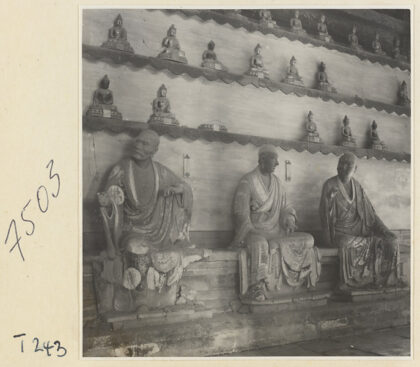 7503
T 243